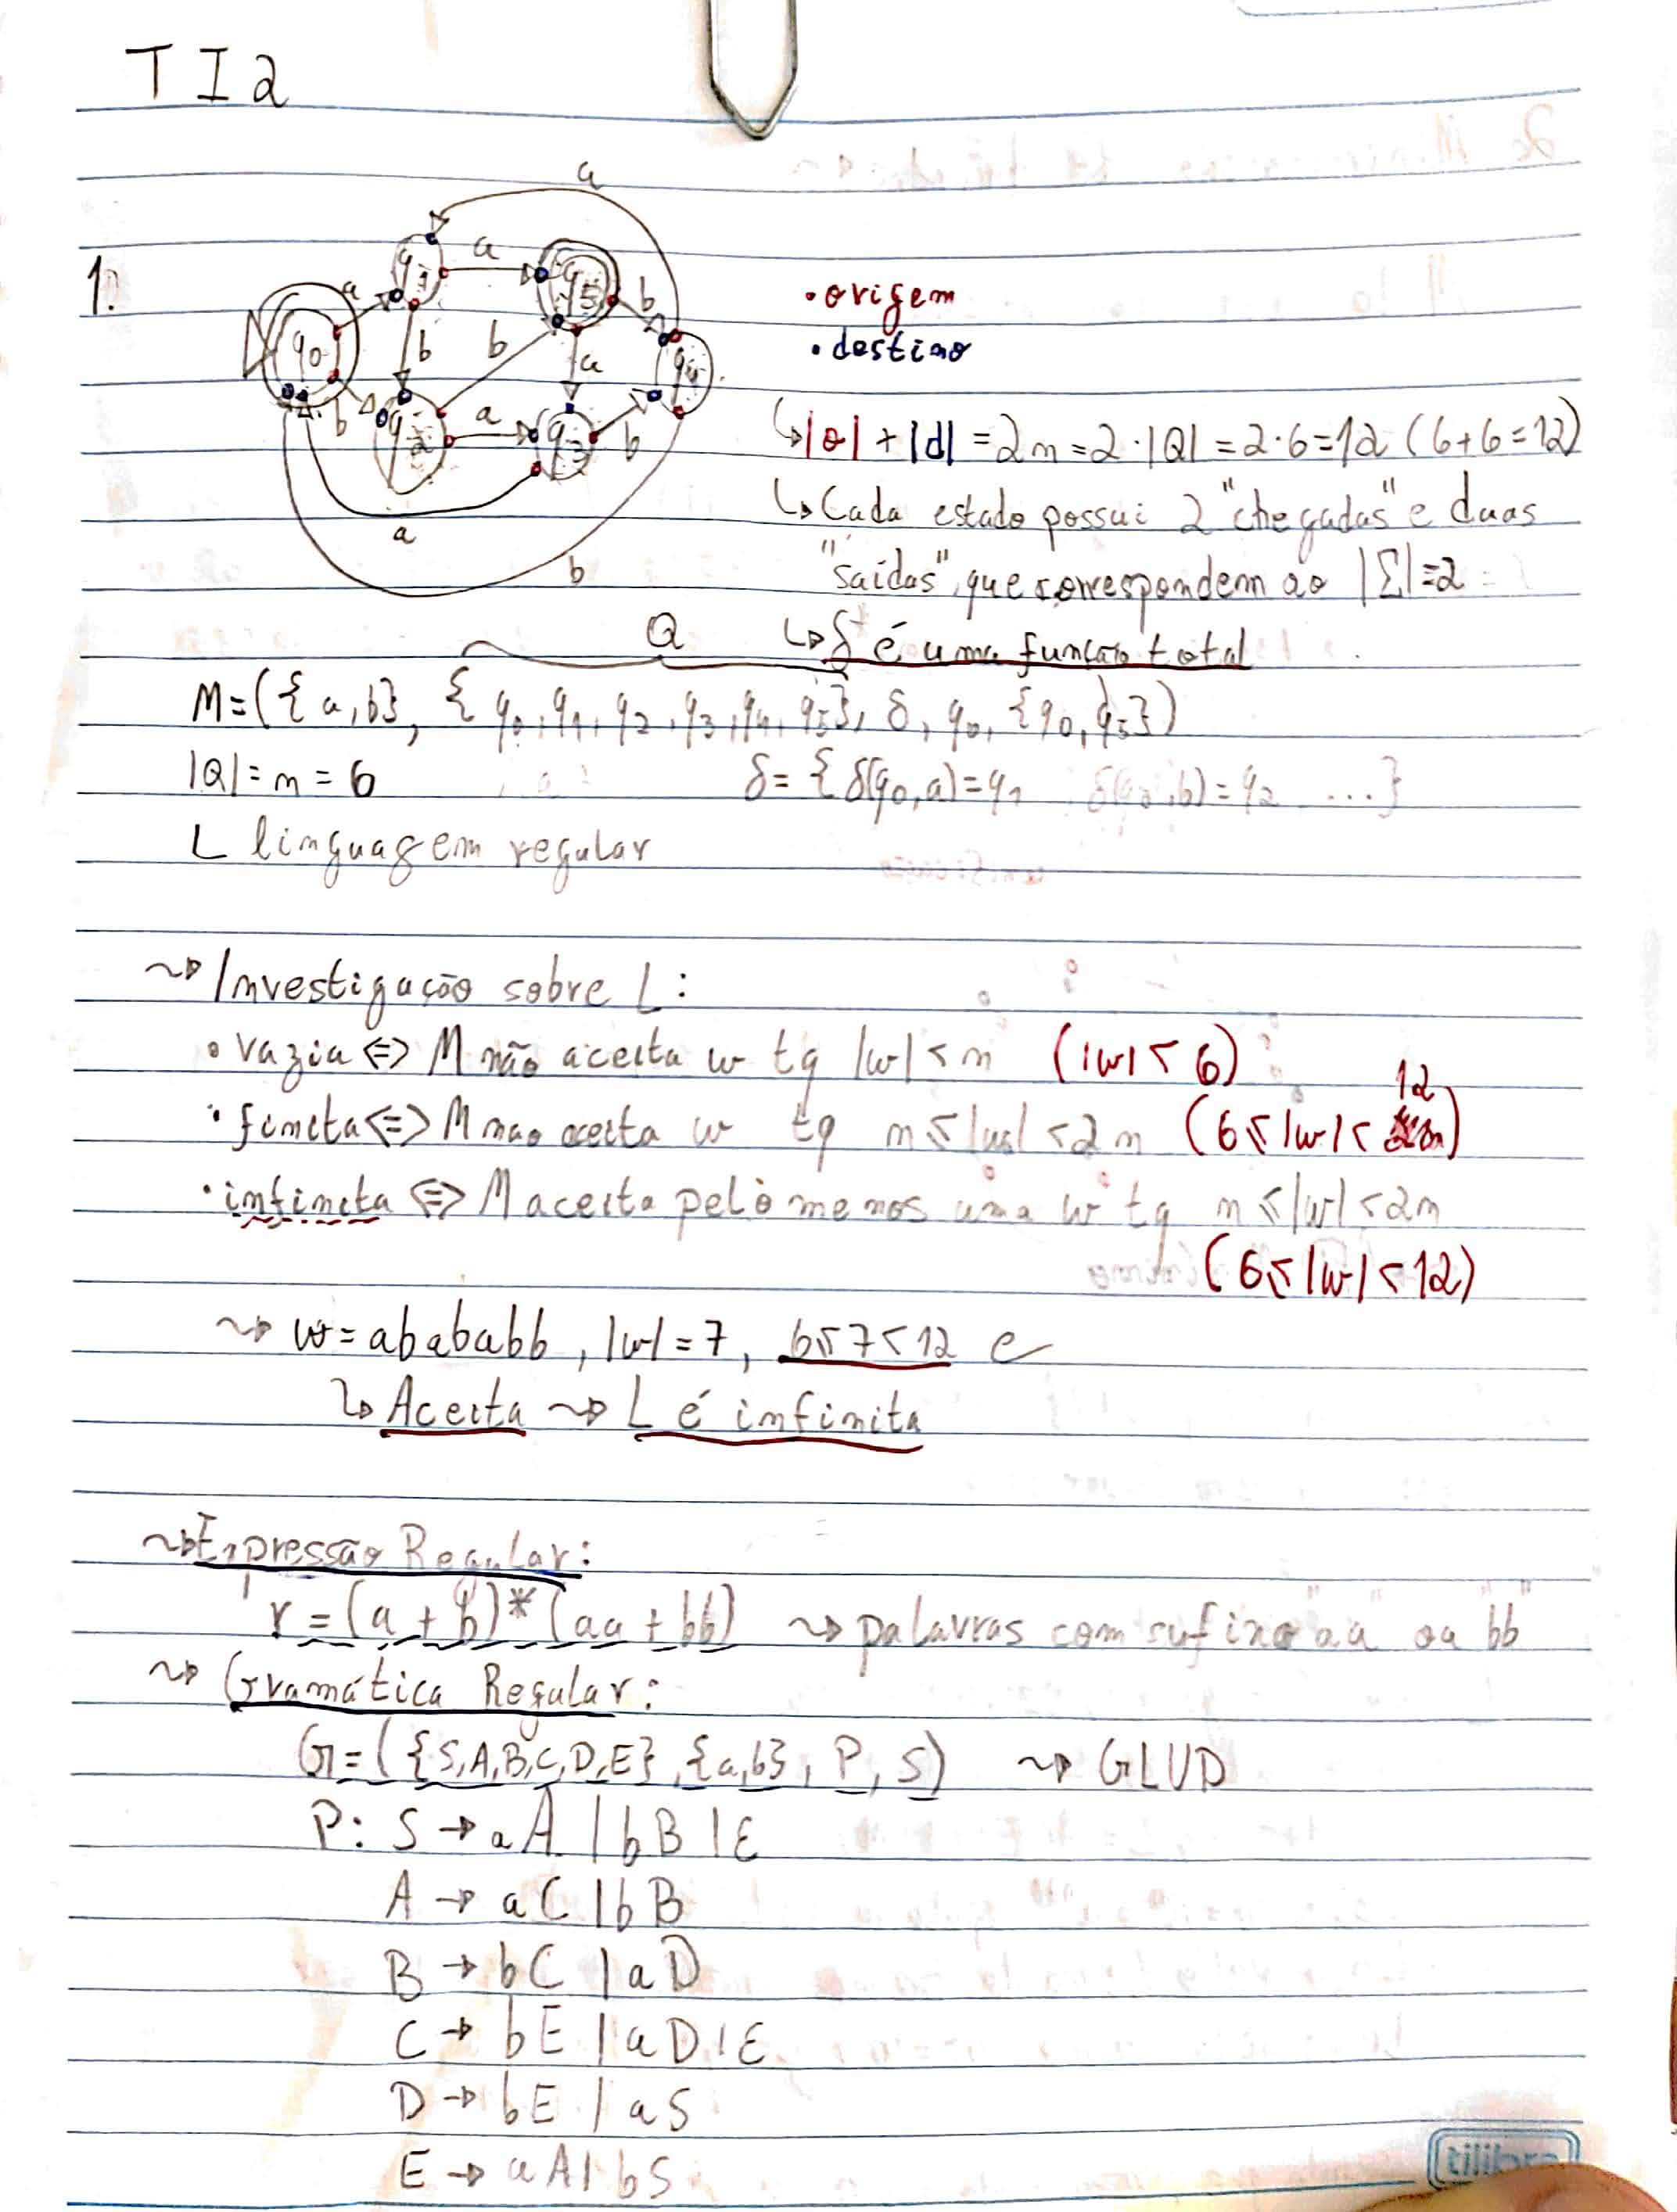 TI2
1.
a
a
a
b
b
b
a
b
a
b
a
b
q0
q1
q2
q3
q4
q5
• origem
• destino
↳ |o| + |d| = 2n = 2·|Q| = 2·6 = 12 (6+6=12)
↳ Cada estado possui 2 "chegadas" e duas
"saídas", que correspondem ao |Σ|=2
Q ↳ δ é uma função total
M = ({a,b}, {q0, q1, q2, q3, q4, q5}, δ, q0, {q0, q5})
|Q| = n = 6 δ = {δ(q0,a)=q1 δ(q0,b)=q2 ...}
L linguagem regular
~> Investigação sobre L:
• vazia <=> M não aceita w tq |w| < n (|w| < 6)
• finita <=> M nao aceita w tq n ≤ |w| < 2n (6 ≤ |w| < 12)
• infinita <=> M aceita pelo menos uma w tq n ≤ |w| < 2n
(6 ≤ |w| < 12)
~> w = abababb, |w| = 7, 6 ≤ 7 < 12 e
↳ Aceita ~> L é infinita
~> Expressão Regular:
r = (a + b)* (aa + bb) ~> palavras com sufixo "aa" ou "bb"
~> Gramática Regular:
G = ({S,A,B,C,D,E}, {a,b}, P, S) ~> GLUD
P: S → aA | bB | ε
A → aC | bB
B → bC | aD
C → bE | aD | ε
D → bE | aS
E → aA | bS
tilibra